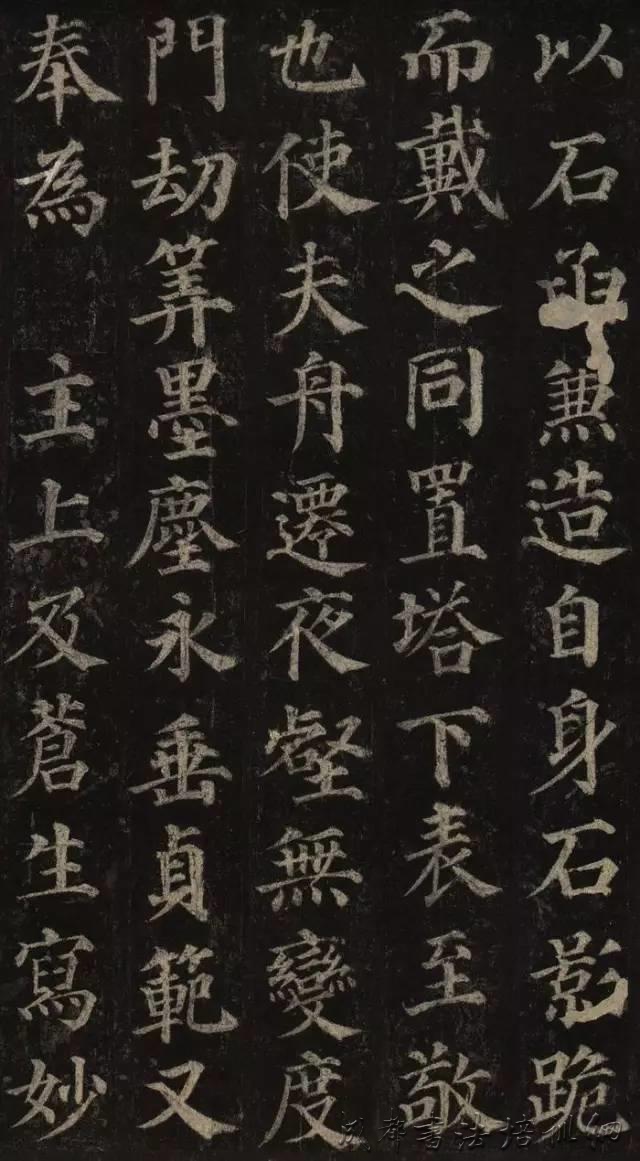 以石函兼造自身石影跪
而戴之同置塔下表至敬
也使夫舟遷夜壑無變度
門劫筭墨塵永垂貞範又
奉為 主上及蒼生寫妙
成都书法培训网